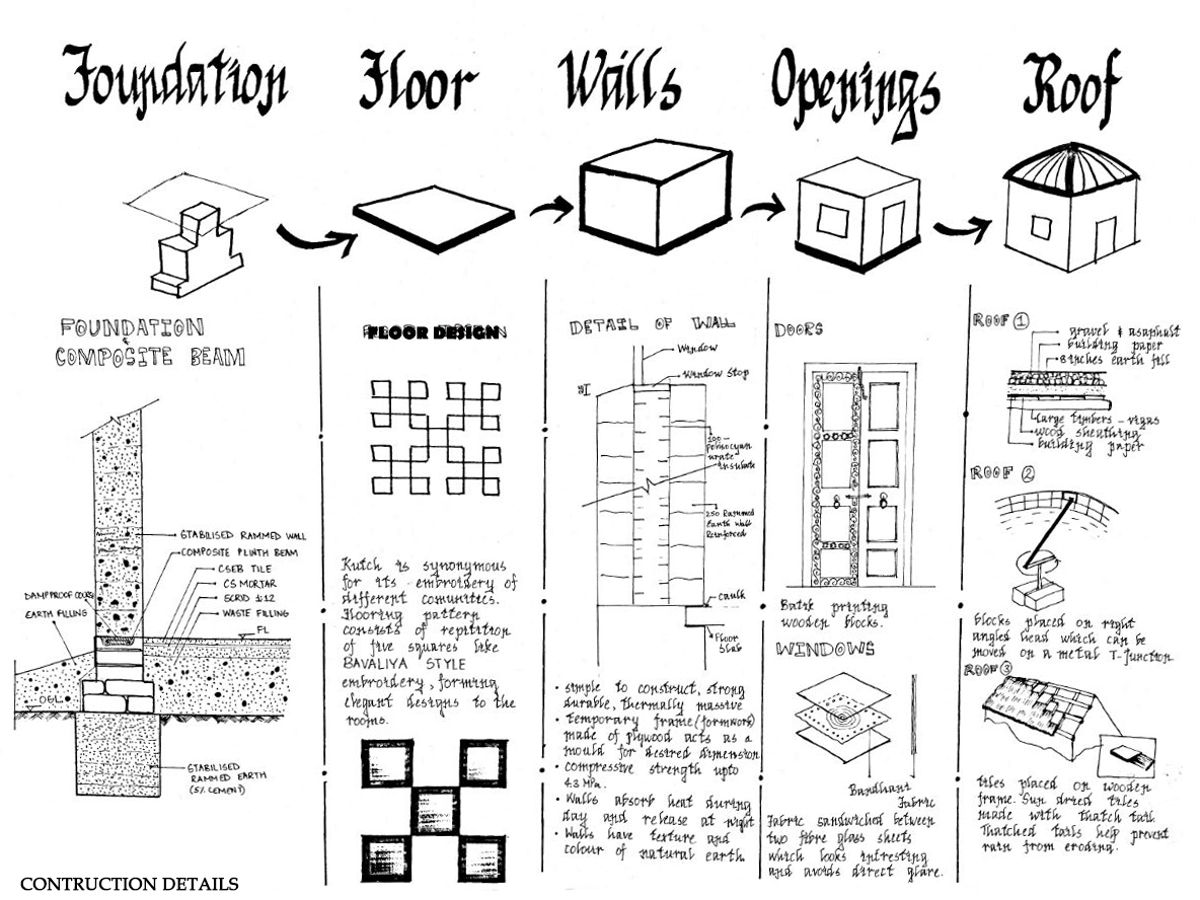 Foundation
Floor
Walls
Openings
Roof
FOUNDATION
&
COMPOSITE BEAM
STABILISED RAMMED WALL
COMPOSITE PLINTH BEAM
CSEB TILE
CS MORTAR
SCRID 1:12
WASTE FILLING
DAMPPROOF COURS
EARTH FILLING
FL
OGL
STABILISED
RAMMED EARTH
(5% CEMENT)
FLOOR DESIGN
Kutch is synonymous
for its embroidery of
different comunities.
Flooring pattern
consists of repitition
of five squares like
BAVALIYA STYLE
embroidery, forming
elegant designs to the
rooms.
DETAIL OF WALL
Window
Window Stop
insulate
250 Rammed
Earth Wall
Reinforced
caulk
Floor
Slab
• simple to construct, strong
durable, thermally massive
• temporary frame (formwork)
made of plywood acts as a
mould for desired dimension
• compressive strength upto
4.3 MPa.
• Walls absorb heat during
day and release at night
• Walls have texture and
colour of natural earth
DOORS
Batik printing
wooden blocks.
WINDOWS
Bandhani
Fabric
Fabric sandwiched between
two fibre glass sheets
which looks intresting
and avoids direct glare.
ROOF 1
gravel & asaphalt
building paper
8 inches earth fill
large timbers - vigas
wood sheathing
building paper
ROOF 2
blocks placed on right
angled head which can be
moved on a metal T-junction
ROOF 3
tiles placed on wooden
frame. Sun dried tiles
made with thatch tail.
Thatched tails help prevent
rain from eroding.
CONTRUCTION DETAILS